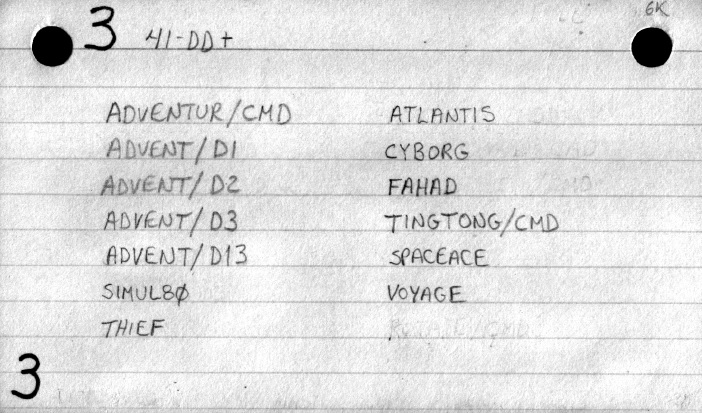 3 41-DD+ 6K
ADVENTUR/CMD ATLANTIS
ADVENT/D1 CYBORG
ADVENT/D2 FAHAD
ADVENT/D3 TINGTONG/CMD
ADVENT/D13 SPACEACE
SIMUL8Ø VOYAGE
THIEF
3